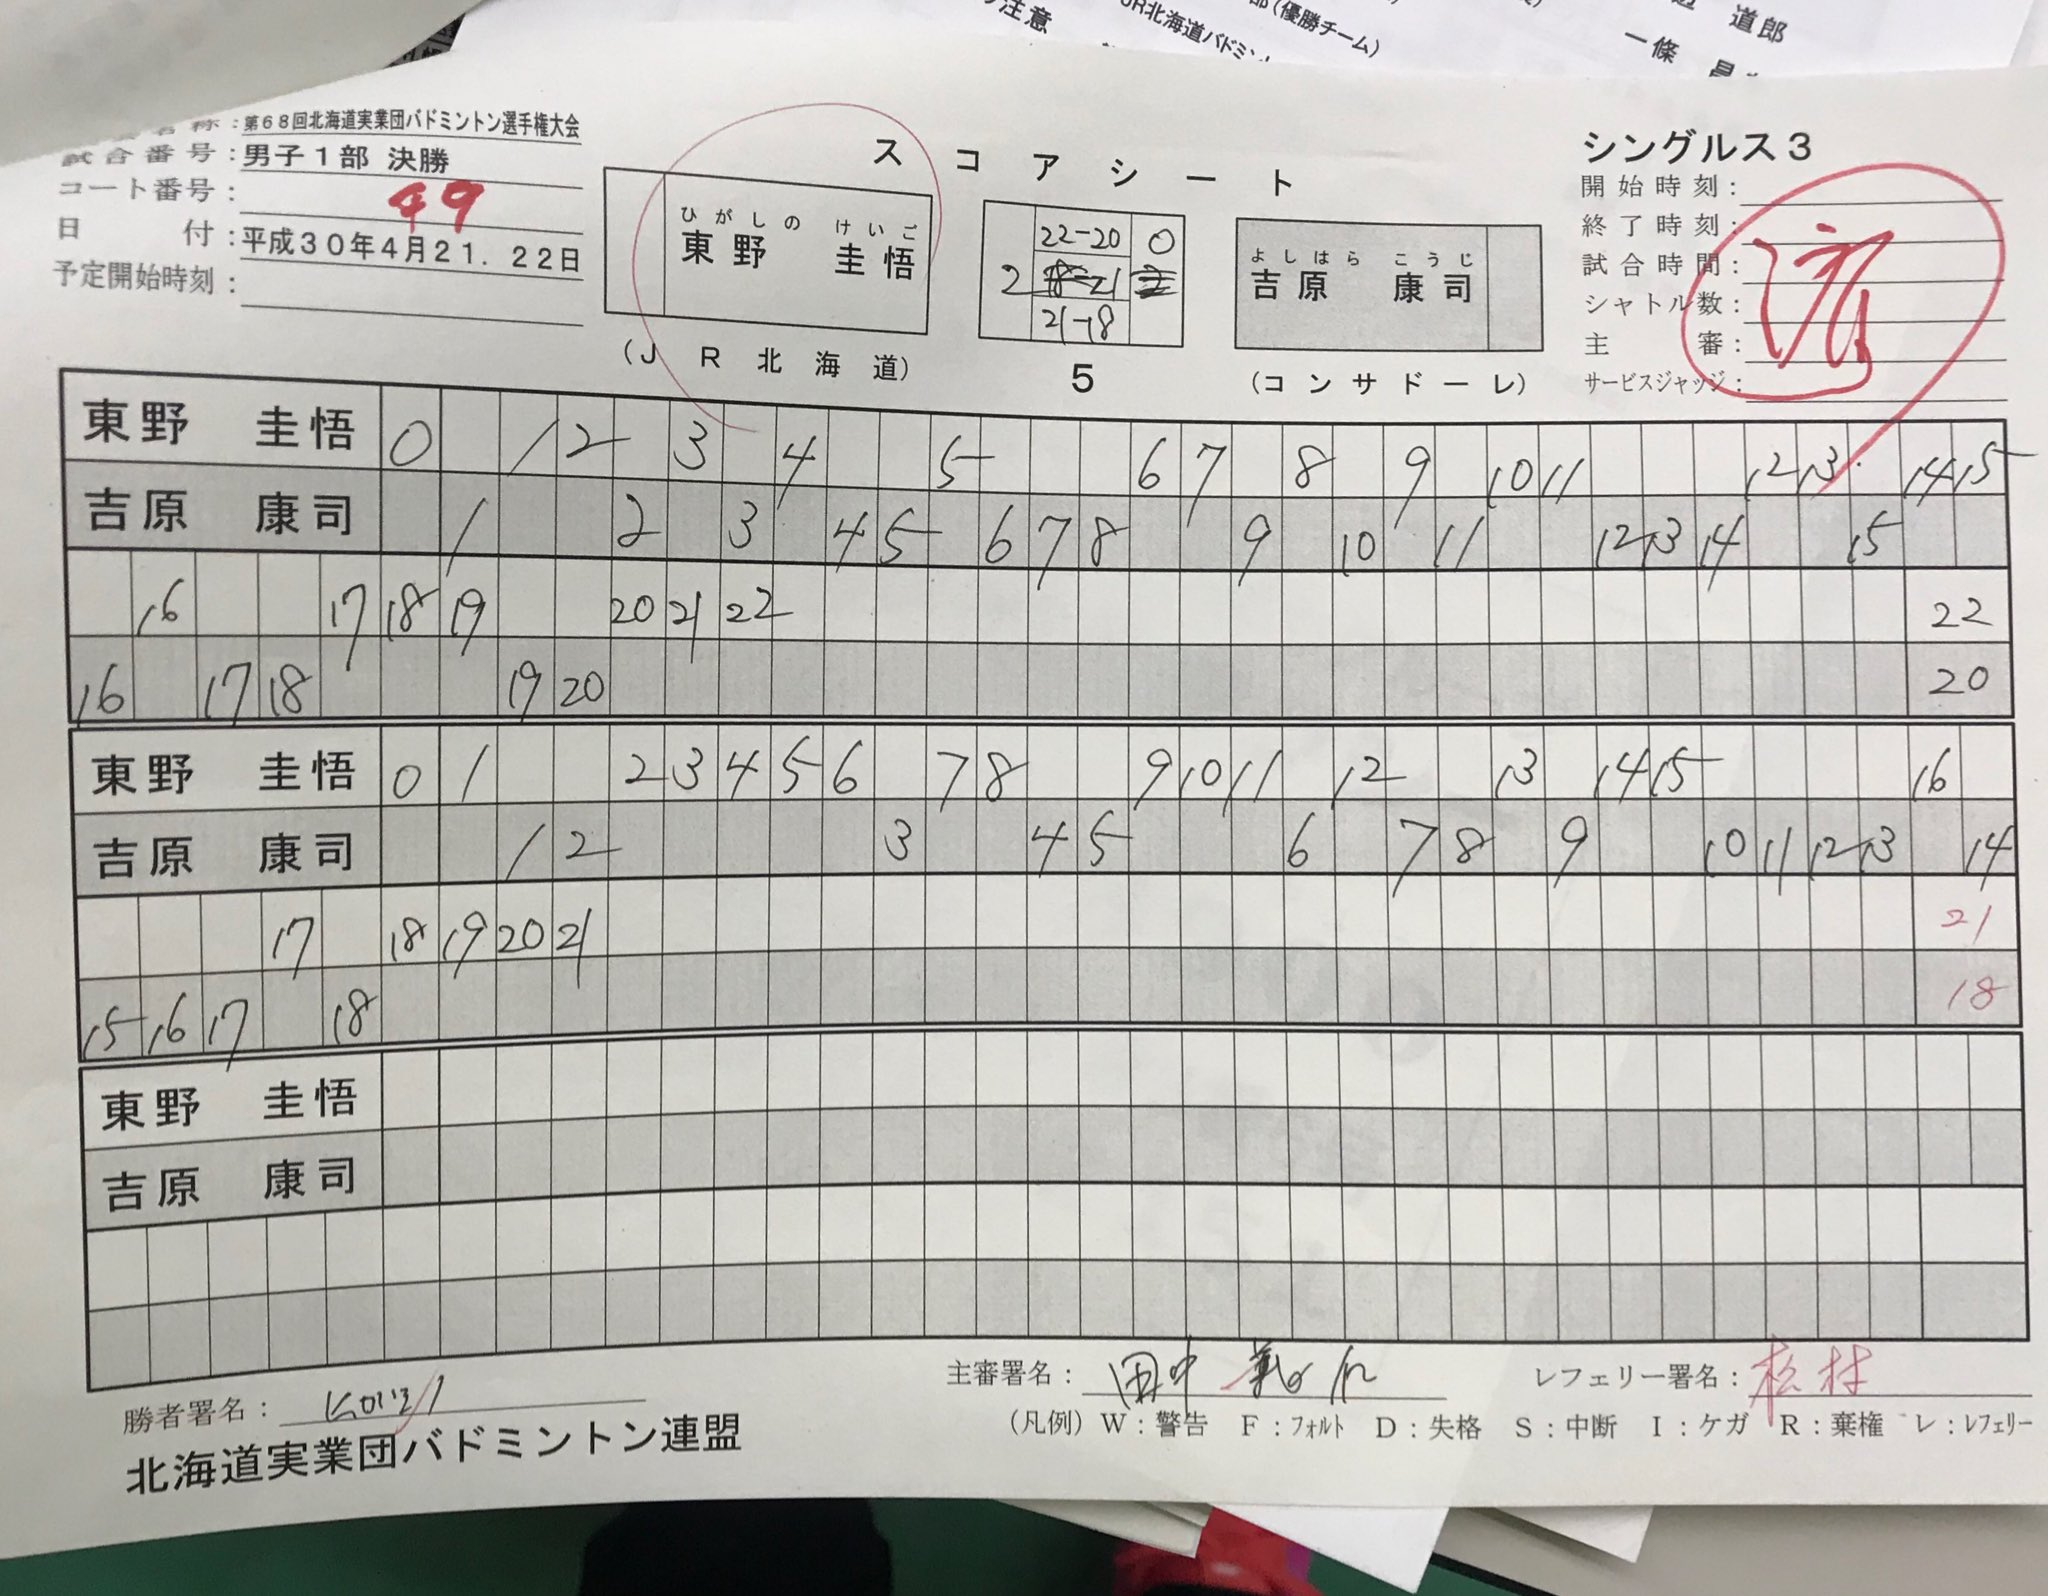 の注意
JR北海道バドミン
部(優勝チーム)
道郎
一條
称：第６８回北海道実業団バドミントン選手権大会
試合番号：男子１部 決勝
コート番号： 49
日　付：平成３０年４月２１．２２日
予定開始時刻：
スコアシート
ひがしの けいご
東野 圭悟
(ＪＲ北海道)
22-20 0
2 18-21 2
21-18
5
よしはら こうじ
吉原 康司
(コンサドーレ)
シングルス３
開始時刻：
終了時刻：
試合時間：
シャトル数：
主　審：
サービスジャッジ：
済
東野 圭悟 0 1 2 3 4 5 6 7 8 9 10 11 12 13 14 15
吉原 康司 1 2 3 4 5 6 7 8 9 10 11 12 13 14 15
16 17 18 19 20 21 22 22
16 17 18 19 20 20
東野 圭悟 0 1 2 3 4 5 6 7 8 9 10 11 12 13 14 15 16
吉原 康司 1 2 3 4 5 6 7 8 9 10 11 12 13 14
17 18 19 20 21 21
15 16 17 18 18
東野 圭悟
吉原 康司
勝者署名：
主審署名： 田中
レフェリー署名： 松村
(凡例) Ｗ：警告 Ｆ：フォルト Ｄ：失格 Ｓ：中断 Ｉ：ケガ Ｒ：棄権 レ：レフェリー
北海道実業団バドミントン連盟